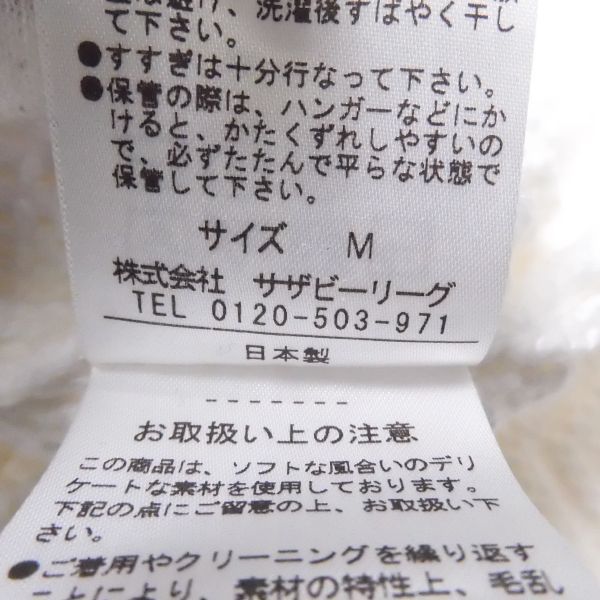 は避け、洗濯後すばやく干し
て下さい。
●すすぎは十分行なって下さい。
●保管の際は、ハンガーなどにか
けると、かたくずれしやすいの
で、必ずたたんで平らな状態で
保管して下さい。
サイズ M
株式会社 サザビーリーグ
TEL 0120-503-971
日本製
-------
お取扱い上の注意
この商品は、ソフトな風合いのデリ
ケートな素材を使用しております。
下記の点にご留意の上、お取扱い下
さい。
●ご着用やクリーニングを繰り返す
ことにより、素材の特性上、毛乱